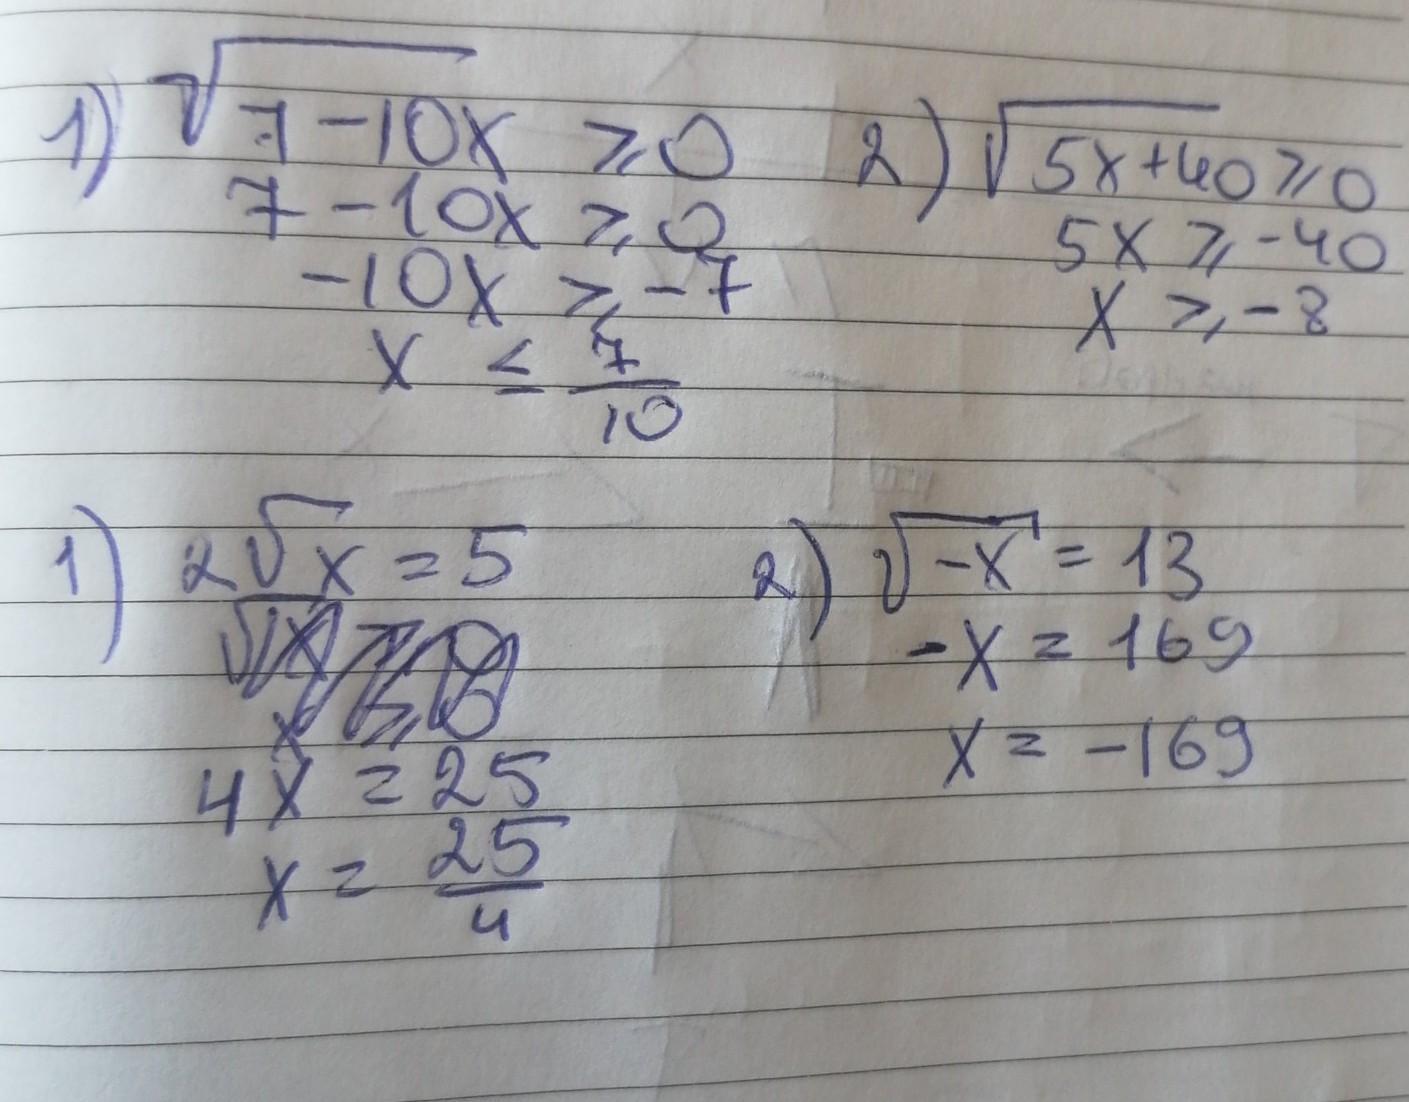 1) √7-10x ≥ 0
7 - 10x ≥ 0
-10x ≥ -7
x ≤ 7/10
2) √5x+40 ≥ 0
5x ≥ -40
x ≥ -8
1) 2√x = 5
4x = 25
x = 25/4
2) √-x = 13
-x = 169
x = -169